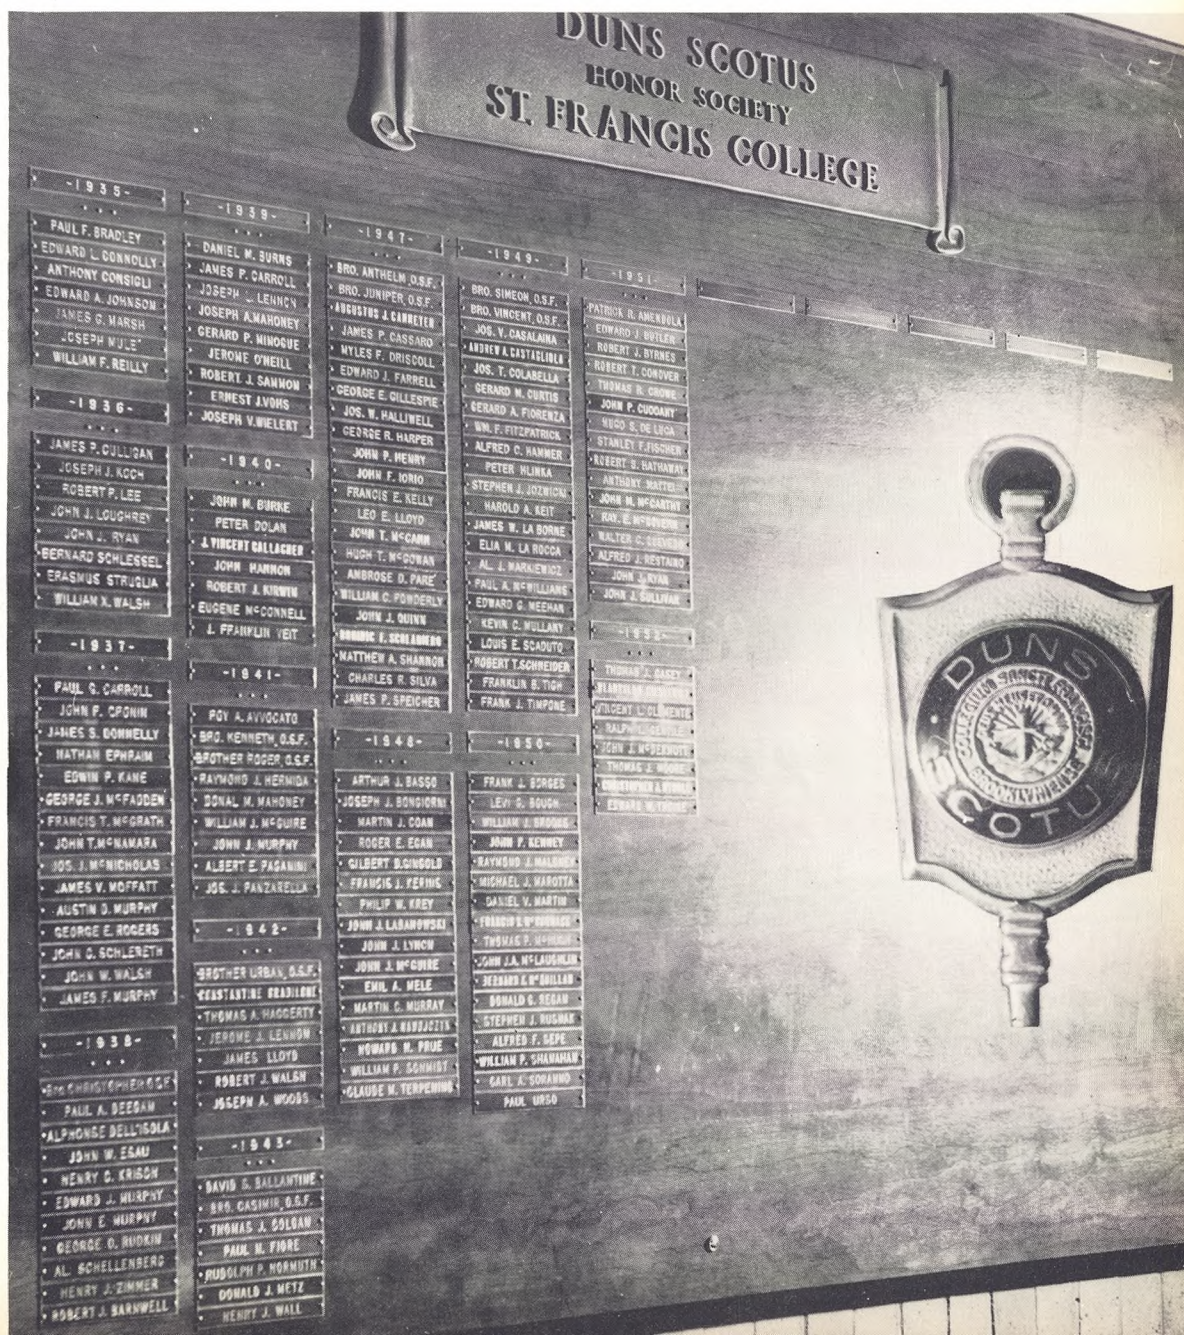 DUNS SCOTUS
HONOR SOCIETY
ST. FRANCIS COLLEGE
-1935-
PAUL F. BRADLEY
EDWARD L. CONNOLLY
ANTHONY CONSIGLI
EDWARD A. JOHNSON
JAMES G. MARSH
JOSEPH MULE'
WILLIAM F. REILLY
-1936-
JAMES P. CULLIGAN
JOSEPH J. KOCH
ROBERT P. LEE
JOHN J. LOUGHREY
JOHN J. RYAN
BERNARD SCHLESSEL
ERASMUS STRUGLIA
WILLIAM X. WALSH
-1937-
PAUL G. CARROLL
JOHN F. CRONIN
JAMES S. DONNELLY
NATHAN EPHRAIM
EDWIN P. KANE
GEORGE J. McFADDEN
FRANCIS T. McGRATH
JOHN T. McNAMARA
JOS. J. McNICHOLAS
JAMES V. MOFFATT
AUSTIN D. MURPHY
GEORGE E. ROGERS
JOHN C. SCHLERETH
JOHN W. WALSH
JAMES F. MURPHY
-1938-
BRO. CHRISTOPHER O.S.F.
PAUL A. DEEGAN
ALPHONSE DELL'ISOLA
JOHN W. ESAU
HENRY C. KRISCH
EDWARD J. MURPHY
JOHN E. MURPHY
GEORGE O. RUDKIN
AL. SCHELLENBERG
HENRY J. ZIMMER
ROBERT J. BARNWELL
-1939-
DANIEL M. BURNS
JAMES P. CARROLL
JOSEPH L. LENNON
JOSEPH A. MAHONEY
GERARD P. MINOGUE
JEROME O'NEILL
ROBERT J. SAMMON
ERNEST J. VOHS
JOSEPH V. WIELERT
-1940-
JOHN M. BURKE
PETER DOLAN
J. VINCENT GALLAGHER
JOHN HANNON
ROBERT J. KIRWIN
EUGENE McCONNELL
J. FRANKLIN VEIT
-1941-
ROY A. AVVOCATO
BRO. KENNETH, O.S.F.
BROTHER ROGER, O.S.F.
RAYMOND J. HERMIDA
DONAL M. MAHONEY
WILLIAM J. McGUIRE
JOHN J. MURPHY
ALBERT E. PAGANINI
JOS. J. PANZARELLA
-1942-
BROTHER URBAN, O.S.F.
CONSTANTINE
THOMAS A. HAGGERTY
JEROME J. LENNON
JAMES LLOYD
ROBERT J. WALSH
JOSEPH A. WOODS
-1943-
DAVID G. BALLANTINE
BRO. CASIMIR, O.S.F.
THOMAS J. COLGAN
PAUL N. FIORE
RUDOLPH P. NORMUTH
DONALD J. METZ
HENRY J. WALL
-1947-
BRO. ANTHELM, O.S.F.
BRO. JUNIPER, O.S.F.
AUGUSTUS J.
JAMES P. CASSARO
MYLES F. DRISCOLL
EDWARD J. FARRELL
GEORGE E. GILLESPIE
JOS. W. HALLIWELL
GEORGE R. HARPER
JOHN P. HENRY
JOHN F. IORIO
FRANCIS E. KELLY
LEO E. LLOYD
JOHN T. McCANN
HUGH T. McGOWAN
AMBROSE D. PARE'
WILLIAM C. POWDERLY
JOHN J. QUINN
DOMINIC F.
MATTHEW A. SHANNON
CHARLES R. SILVA
JAMES P. SPEICHER
-1948-
ARTHUR J. BASSO
JOSEPH J. BONGIORNI
MARTIN J. COAN
ROGER E. EGAN
GILBERT D. GINGOLD
FRANCIS J. KERINS
PHILIP W. KREY
JOHN J. LABANOWSKI
JOHN J. LYNCH
JOHN J. McGUIRE
EMIL A. MELE
MARTIN C. MURRAY
ANTHONY J.
HOWARD M. PRUE
WILLIAM P. SCHMIDT
CLAUDE M. TERPENING
-1949-
BRO. SIMEON, O.S.F.
BRO. VINCENT, O.S.F.
JOS. V. CASALAINA
ANDREW A. CASTAGLIOLA
JOS. T. COLABELLA
GERARD M. CURTIS
GERARD A. FIORENZA
WM. F. FITZPATRICK
ALFRED C. HAMMER
PETER HLINKA
STEPHEN J. JOZWICKI
HAROLD A. KEIT
JAMES W. LA BORNE
ELIA M. LA ROCCA
AL. J. MARKIEWICZ
PAUL A. McWILLIAMS
EDWARD G. MEEHAN
KEVIN C. MULLANY
LOUIS E. SCADUTO
ROBERT T. SCHNEIDER
FRANKLIN B. TIGH
FRANK J. TIMPONE
-1950-
FRANK J. BORGES
LEVI G. BOUGH
WILLIAM J. BROOKS
JOHN P. KENNEY
RAYMOND J. MALONEY
MICHAEL J. MAROTTA
DANIEL V. MARTIN
FRANCIS X.
THOMAS P. McHUGH
JOHN J.A. McLAUGHLIN
BERNARD C. McQUILLAN
DONALD G. REGAN
STEPHEN J. RUSNAK
ALFRED F. SEPE
WILLIAM P. SHANAHAN
CARL A. SORANNO
PAUL URSO
-1951-
PATRICK R. AMENDOLA
EDWARD J. BUTLER
ROBERT J. BYRNES
ROBERT T. CONOVER
THOMAS R. CROWE
JOHN P. CUDDAHY
HUGO S. DE LUCA
STANLEY F. FISCHER
ROBERT B. HATHAWAY
ANTHONY MATTEI
JOHN M. McCARTHY
RAY. E. McGOVERN
WALTER C.
ALFRED J. RESTAINO
JOHN J. RYAN
JOHN J. SULLIVAN
THOMAS J. CASEY
VINCENT L. CLEMENTE
RALPH L. GENTILE
JOHN J. McDERMOTT
THOMAS J. MOORE
CHRISTOPHER J.
EDWARD W.
DUNS
SCOTUS